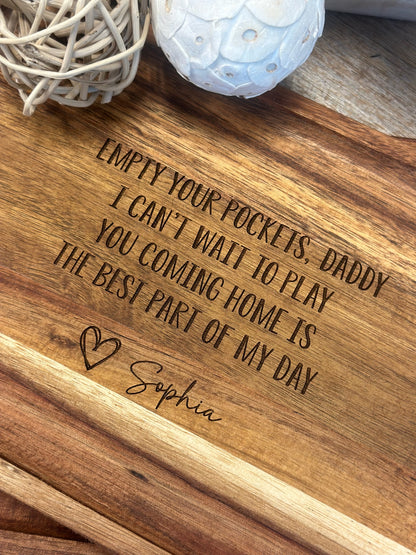 EMPTY YOUR POCKETS, DADDY
I CAN'T WAIT TO PLAY
YOU COMING HOME IS
THE BEST PART OF MY DAY
Sophia